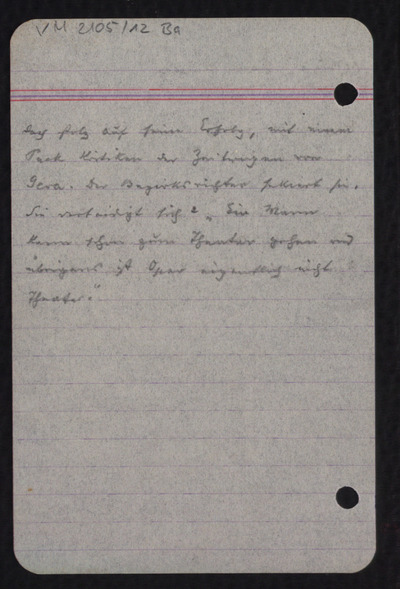 VM 2105/12 Ba
doch stolz auf seine Erfolge, mit einem
Pack Kritiken der Zeitungen von
Gera. Der Bezirksrichter sekiert sie.
Sie verteidigt sich: „Ein Mann
kann schon zum Theater gehen und
übrigens ist Oper eigentlich nicht
Theater."